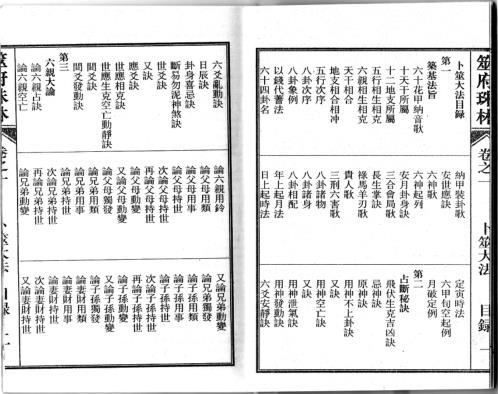 筮府珠林
卷之一
卜筮大法
目錄
一
卜筮大法目錄
第一
築基法旨
六十花甲納音歌
十天干所屬
十二地支所屬
五行相生相尅
六親相生相尅
天干相合
地支相合相冲
五行次序
八卦次序
八卦象例
以錢代蓍法
六十四卦名
納甲裝卦歌
安世應訣
六神歌
六神起列
安月卦身訣
三合會局歌
長生掌訣
祿馬羊刃歌
貴人歌
三刑六害歌
八卦諸物
八卦諸身
八卦相配
年上起月法
日上起時法
定寅時法
六甲旬空起例
月破定例
第二
占斷秘訣
飛伏生克吉凶訣
忌神訣
原神訣
用神不上卦訣
又訣
用神空亡訣
又訣
用神泄氣訣
用神發動訣
六爻安靜訣
六爻亂動訣
日辰訣
卦身喜忌訣
斷易勿泥神煞訣
又訣
世爻訣
應爻訣
世應相克訣
世應生克空亡動靜訣
間爻訣
間爻發動訣
第三
六親大論
論六親占訣
論六親空亡
論六親用鈴
論父母用類
論父母用事
論父母持世
次論父母持世
再論父母持世
論父母動變
又論父母動變
論父母獨發
論兄弟用類
論兄弟用事
論兄弟持世
次論兄弟持世
再論兄弟持世
論兄弟動變
又論兄弟動變
論兄弟獨發
論子孫用類
論子孫用事
論子孫持世
次論子孫持世
再論子孫持世
論子孫動變
又論子孫動變
論子孫獨發
論妻財用類
論妻財用事
論妻財持世
次論妻財持世
又論妻財持世
筮府珠林
卷之一
卜筮大法
目錄
二